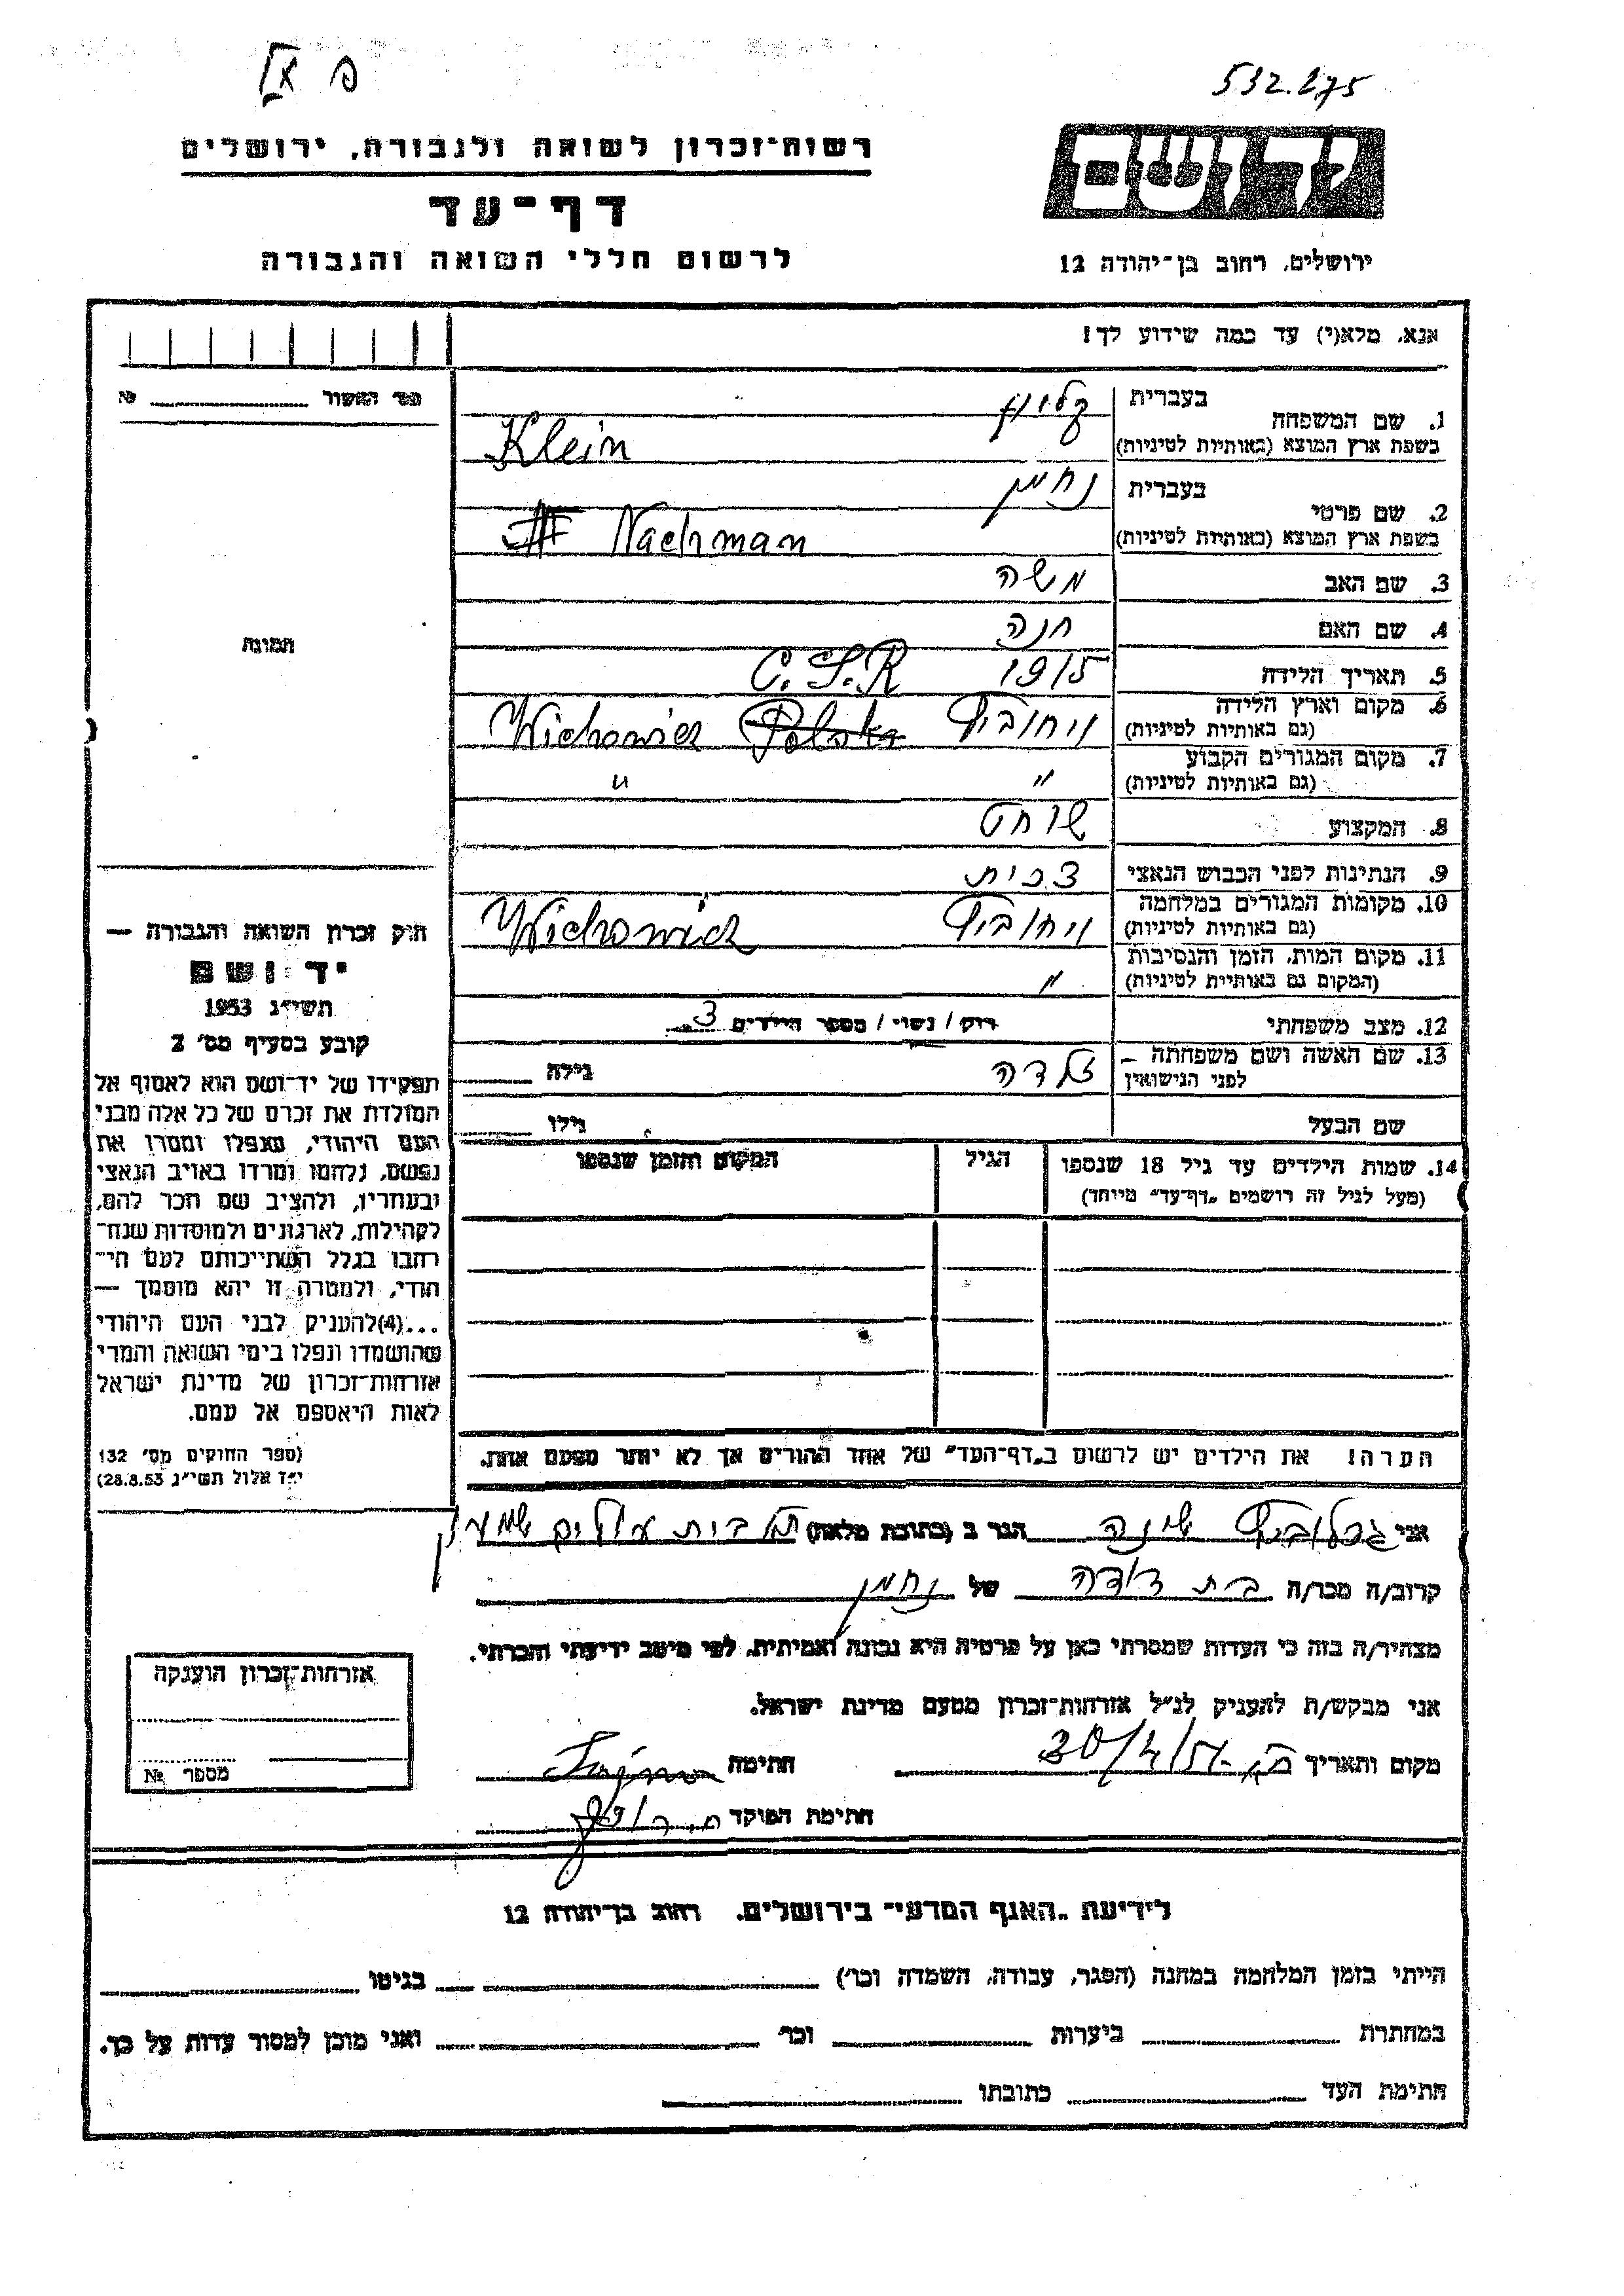 532.275
רשות-זכרון לשואה ולגבורה, ירושלים
דף-עד
לרשום חללי השואה והגבורה
ידושם
ירושלים, רחוב בן-יהודה 12
אנא, מלא(י) עד כמה שידוע לך!
מס׳ האשור № 
1. שם המשפחה
בעברית קליין
בשפת ארץ המוצא (באותיות לטיניות) Klein
2. שם פרטי
בעברית נחמן
בשפת ארץ המוצא (באותיות לטיניות) Nachman
3. שם האב משה
4. שם האם חנה
5. תאריך הלידה 1915 C.S.R
6. מקום וארץ הלידה (גם באותיות לטיניות) ויחוביץ Polska Wichowicz
7. מקום המגורים הקבוע (גם באותיות לטיניות) " "
8. המקצוע שוחט
9. הנתינות לפני הכבוש הנאצי צ'כית
10. מקומות המגורים במלחמה (גם באותיות לטיניות) ויחוביץ Wichowicz
11. מקום המות, הזמן והנסיבות (המקום גם באותיות לטיניות) "
12. מצב משפחתי רוק / נשוי / מספר הילדים 3
13. שם האשה ושם משפחתה לפני הנישואין זלדה גילה
שם הבעל גילו
14. שמות הילדים עד גיל 18 שנספו
(מעל לגיל זה רושמים „דף-עד" מיוחד)
הגיל
המקום והזמן שנספו
תמונה
חוק זכרון השואה והגבורה —
יד ושם
תשי״ג 1953
קובע בסעיף מס׳ 2
תפקידו של יד-ושם הוא לאסוף אל
המולדת את זכרם של כל אלה מבני
העם היהודי, שנפלו ומסרו את
נפשם, נלחמו ומרדו באויב הנאצי
ובעוזריו, ולהציב שם וזכר להם,
לקהילות, לארגונים ולמוסדות שנח-
רבו בגלל השתייכותם לעם הי-
הודי, ולמטרה זו יהא מוסמך —
...(4) להעניק לבני העם היהודי
שהושמדו ונפלו בימי השואה והמרי
אזרחות-זכרון של מדינת ישראל
לאות היאספם אל עמם.
(ספר החוקים מס׳ 132
י״ז אלול תשי״ג 28.8.53)
הערה! את הילדים יש לרשום ב„דף-העד" של אחד ההורים אך לא יותר מפעם אחת.
אני שינה הגר ב (כתובת מלאה) בית עולים
קרוב/ה מכר/ה בת דודה של נחמן
מצהיר/ה בזה כי העדות שמסרתי כאן על פרטיה היא נכונה ואמיתית, לפי מיטב ידיעתי והכרתי.
אני מבקש/ת להעניק לנ״ל אזרחות-זכרון מטעם מדינת ישראל.
מקום ותאריך 30/4/57 חתימה
חתימת הפוקד
אזרחות-זכרון הוענקה
מספר №
לידיעת „האגף המדעי" בירושלים, רחוב בן-יהודה 12
הייתי בזמן המלחמה במחנה (הסגר, עבודה, השמדה וכו׳) בגיטו
במחתרת ביערות וכו׳ ואני מוכן למסור עדות על כך.
חתימת העד כתובתו